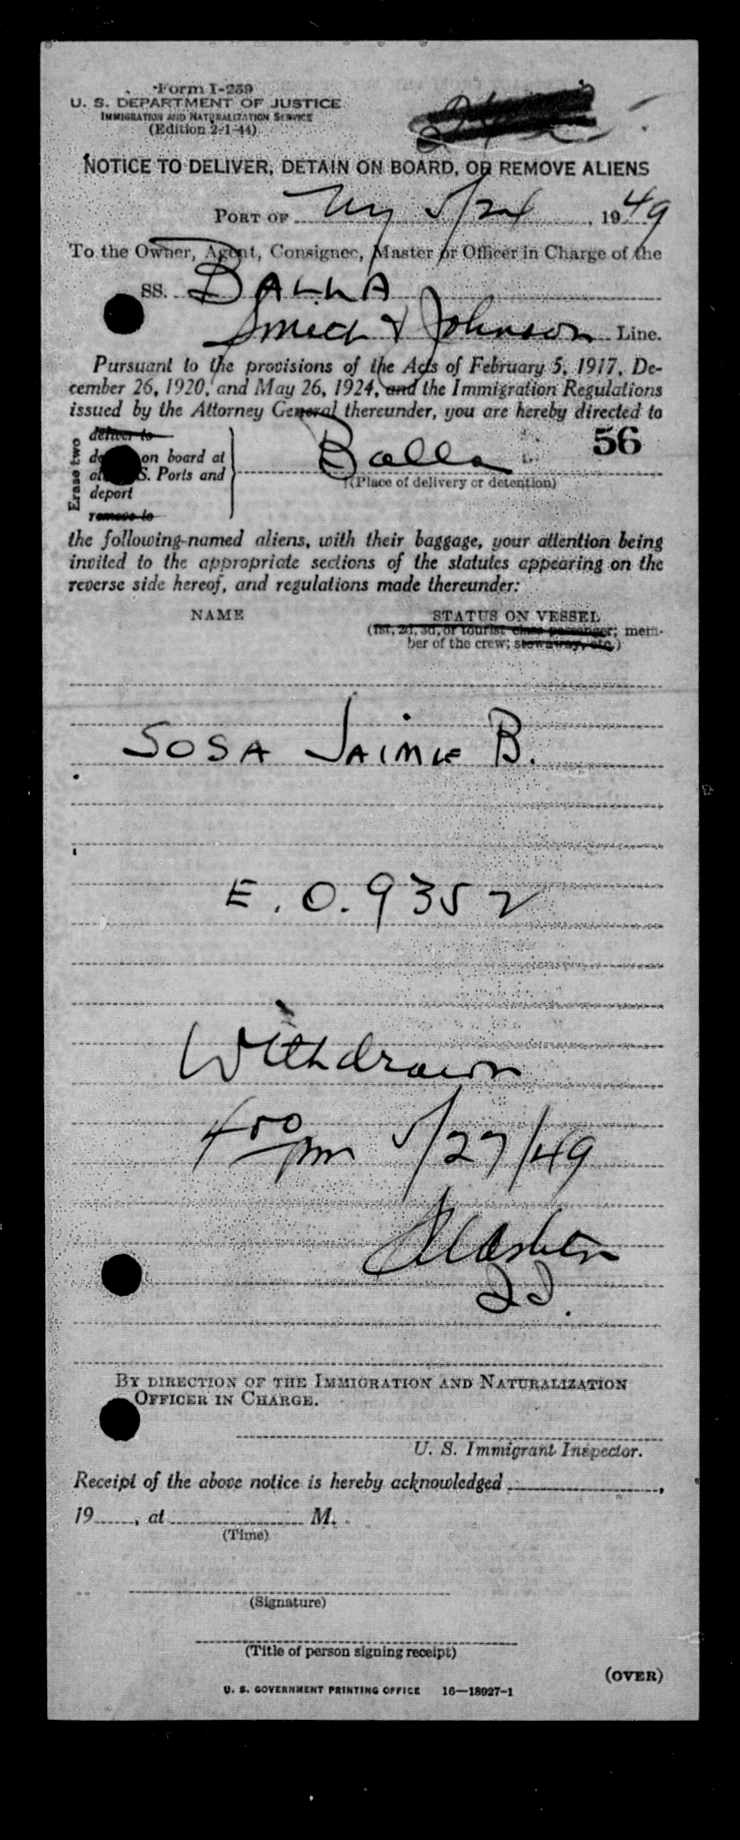 Form I-259
U. S. DEPARTMENT OF JUSTICE
IMMIGRATION AND NATURALIZATION SERVICE
(Edition 2-1-44)
NOTICE TO DELIVER, DETAIN ON BOARD, OR REMOVE ALIENS
PORT OF NY 5/24, 1949
To the Owner, Agent, Consignee, Master or Officer in Charge of the
SS. BALLA
Smith & Johnson Line.
Pursuant to the provisions of the Acts of February 5, 1917, De-
cember 26, 1920, and May 26, 1924, and the Immigration Regulations
issued by the Attorney General thereunder, you are hereby directed to
Erase two
deliver to
on board at
S. Ports and
deport
remove to
Balla
56
(Place of delivery or detention)
the following-named aliens, with their baggage, your attention being
invited to the appropriate sections of the statutes appearing on the
reverse side hereof, and regulations made thereunder:
NAME STATUS ON VESSEL
(1st, 2d, 3d, or tourist class passenger; mem-
ber of the crew; stowaway, etc.)
SOSA JAIME B.
E. O. 9352
Withdrawn
4 00 pm 5/27/49
BY DIRECTION OF THE IMMIGRATION AND NATURALIZATION
OFFICER IN CHARGE.
U. S. Immigrant Inspector.
Receipt of the above notice is hereby acknowledged ,
19 , at M.
(Time)
(Signature)
(Title of person signing receipt)
(OVER)
U. S. GOVERNMENT PRINTING OFFICE 16—18027-1